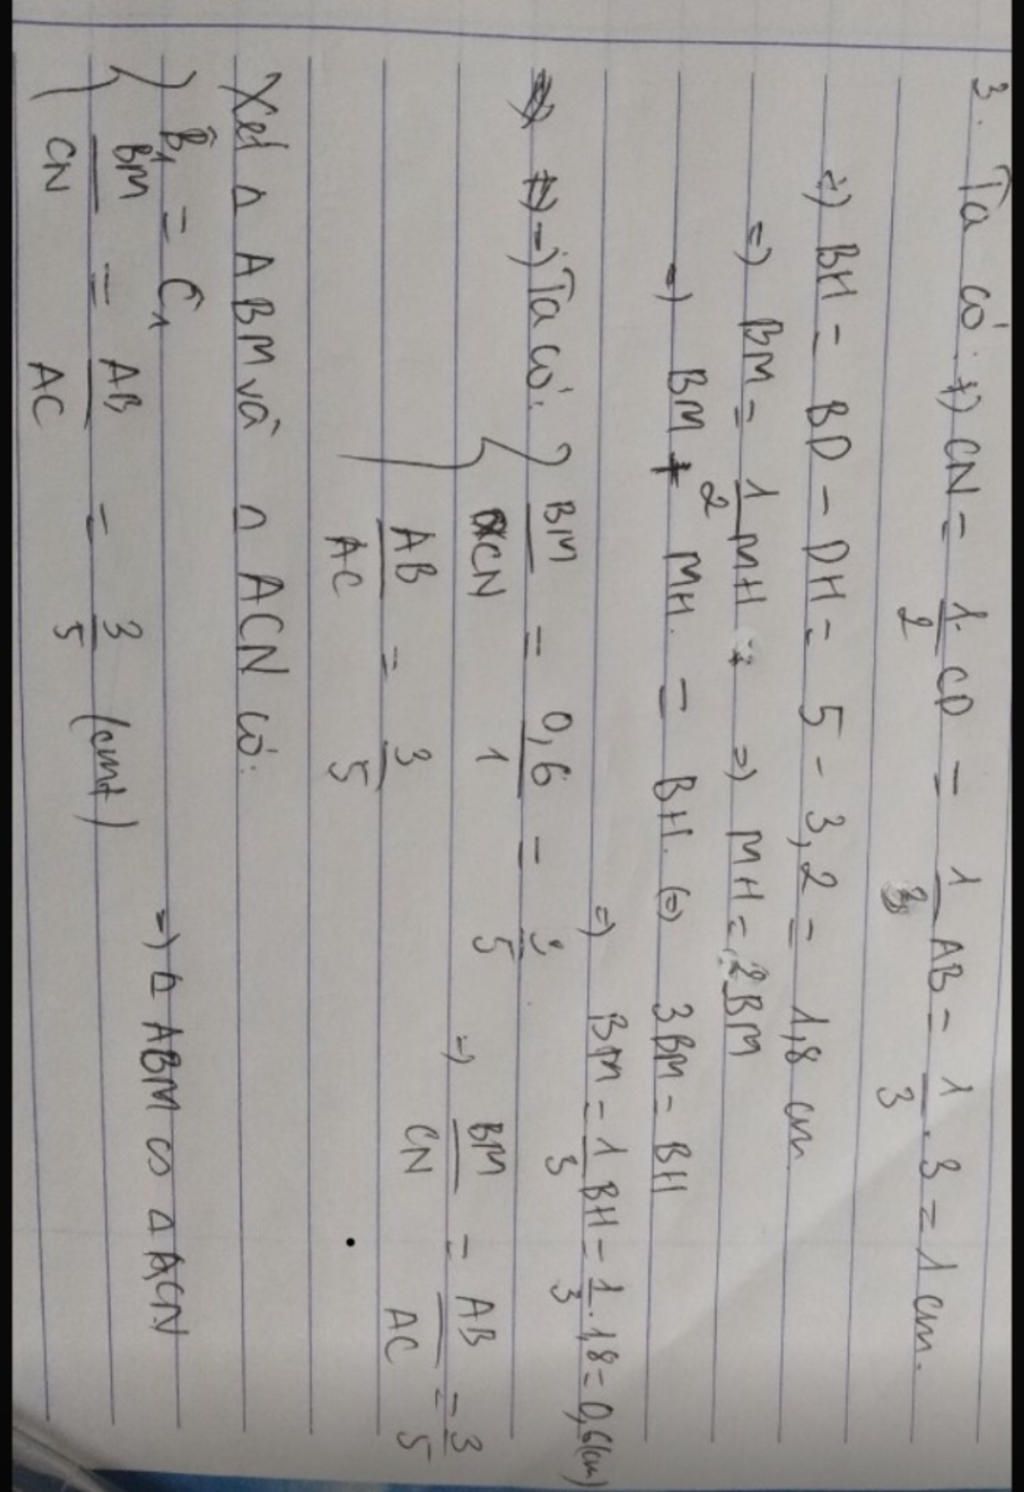 3. Ta có: +) CN = 1/2 CD = 1/3 AB = 1/3 . 3 = 1 cm.
+) BH = BD - DH = 5 - 3,2 = 1,8 cm
=) BM = 1/2 MH => MH = 2BM
=) BM + MH = BH (=) 3BM = BH
=) BM = 1/3 BH = 1/3 . 1,8 = 0,6(cm)
-) Ta có: { BM/CN = 0,6/1 = 3/5
AB/AC = 3/5
=) BM/CN = AB/AC = 3/5
Xét Δ ABM và Δ ACN có:
{ B̂1 = Ĉ1
BM/CN = AB/AC = 3/5 (cmt)
=) Δ ABM ∽ Δ ACN